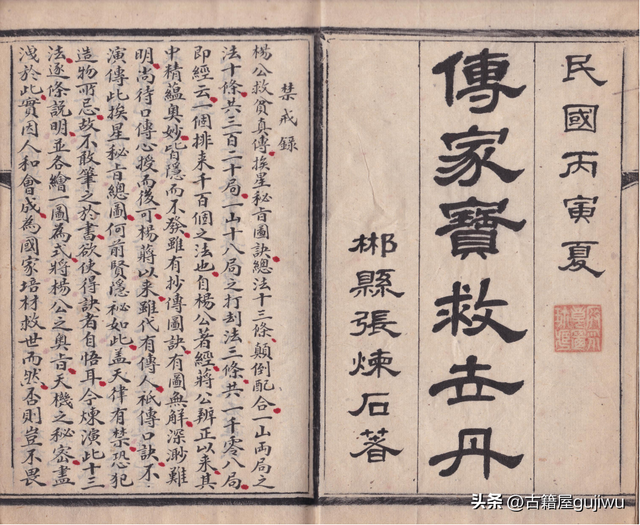 民國丙寅夏
傳家寶救世丹
郴縣張煉石著
禁戒錄
楊公救貧真傳挨星秘旨圖訣總法十三條顛倒配合一山兩局之
法十條共三百二十局一山十八局之打刦法三條共一千零八局
即經云一個排來千百個之法也自楊公著經蔣公辨正以來其
中精蘊奧妙皆隱而不發雖有抄傳圖訣有圖無解深渺難
明尚待口傳心授而後可楊蔣以來雖代有傳人祇傳口訣不
演傳此挨星秘旨總圖何前賢隱秘如此盖天律有禁恐犯
造物所忌故不敢筆之於書欲使得訣者自悟耳今煉演此十三
法逐條說明並各繪一圖為式將楊公之奧旨天機之秘密盡
洩於此實因人和會成為國家培材救世而然否則豈不畏
头条 @古籍屋gujiwu